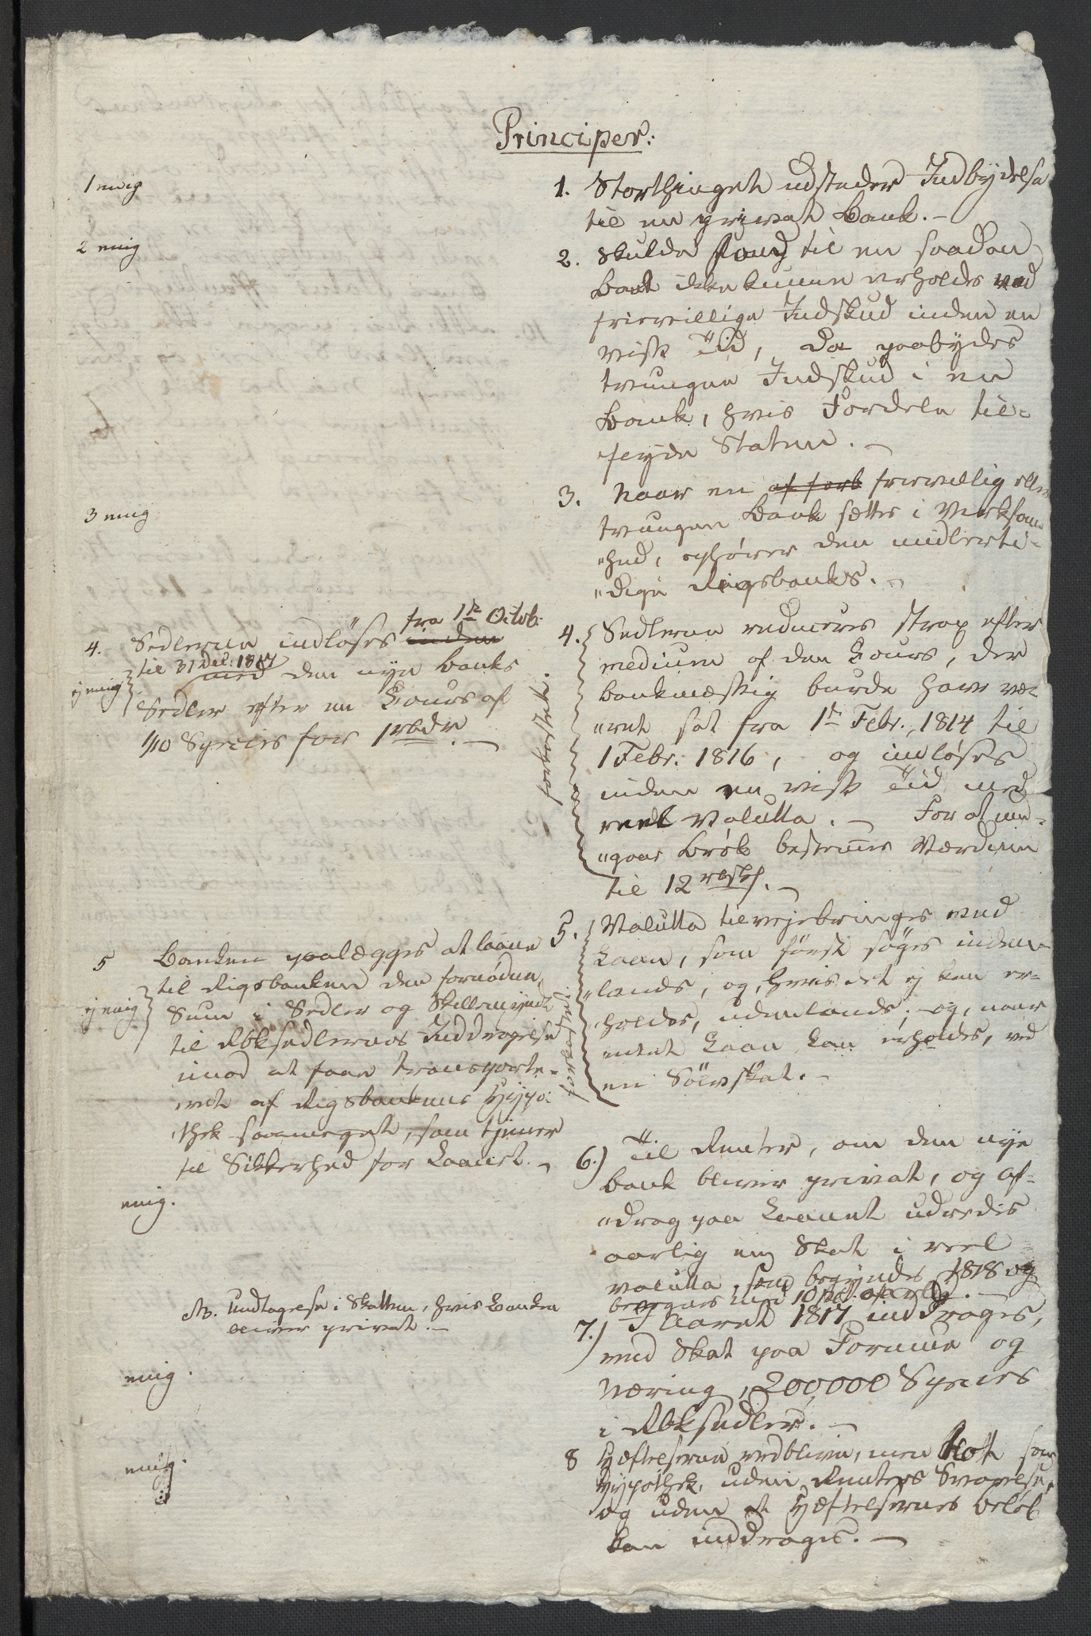 Principer:
1 enig
1. Storthinget udsteder Indbydelse
til en privat Bank. –
2 enig
2. Skulde Fond til en saadan
Bank ikke kunne erholdes ved
frievillige Indskud inden en
visse Tid, da paabydes
tvungne Indskud i en
Bank, hvis Fordele til-
feyde Staten. –
3 enig
3. Naar en af forb frievillig eller
tvungen Bank sættes i Virksom-
"hed, ophører den midlerti-
"dige Rigsbanks. –
4. Sedlerne indløses inden fra 1te Octob:
til 31 Dec: 1817 med den nye Banks
ej enig
Sedler efter en Cours af
1/10 Species for 1 rbdr. –
forkastet.
4. Sedlerne reduceres strax efter
medium af den Cours, der
bankmæssig burde have væ-
"ret sat fra 1te Febr. 1814 til
1 Febr. 1816, og indløses
inden en visse Tid med
reel Valutta. – For at und-
"gaae Brøk bestemes Værdien
til 12 rbsk. –
5 Banken paalægges at laane
til Rigsbanken den fornødne
ej enig
Sum i Sedler og Skillemynt
til Rbksedlernes Inddragelse
imod at faae transporte-
ret af Rigsbankens Hypo-
"thek saameget, som tjener
til Sikkerhed for Laanet. –
forkastet.
5. Valutta tilvejebringes ved
Laan, som først søges inden-
"lands, og, hvis det ej kan er-
"holdes, udenlands; og, naar
intet Laan kan erholdes, ved
en Sølvskat. –
enig.
6.) Til Renter, om den nye
Bank bliver privat, og af-
"drag paa Laanet udredes
aarlig en Skat i reel
valutta, som begyndes 1818 og
Nb. Undtagelse i Skatten, hvis Banken
bliver privat. –
enig.
7.) I Aaret 1817 inddrages,
ved Skat paa Formue og
Næring, 200,000 Species
i Rbksedler. –
enig.
8 Hæftelserne vedblive, men blot som
Hypothek, uden Renters Svarelse,
og uden at Hæftelsernes beløb
kan inddrages. –